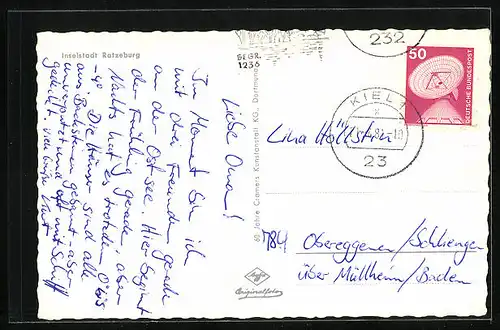 Inselstadt Ratzeburg
Liebe Oma!
Im Moment bin ich
mit drei Freunden gerade
an der Ostsee. Hier beginnt
der Frühling gerade, aber
Nachts hat es trotzdem 0° bis
-4°. Die Häuser sind alle
aus Backsteinen gebaut - aber
unverputzt und oft mit Schilf
gedeckt. Viele Grüße
60 Jahre Cramers Kunstanstalt KG., Dortmund
BEGR.
1236
232
50
DEUTSCHE BUNDESPOST
KIEL 1
23
Lina
7841
Obereggenen/Schliengen
über Müllheim/Baden
Agfa
Originalfoto